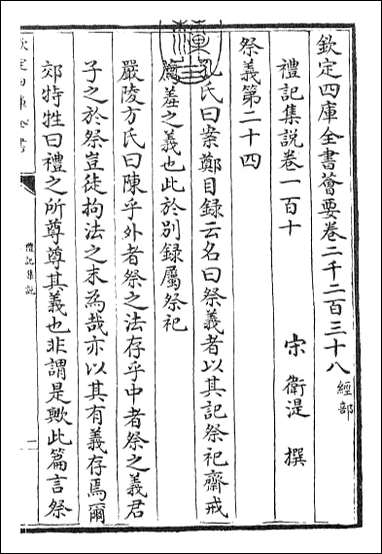 欽定四庫全書薈要卷二千二百三十八 經部
禮記集說卷一百十
宋 衛湜 撰
祭義第二十四
孔氏曰案鄭目録云名曰祭義者以其記祭祀齋戒
薦羞之義也此於別録屬祭祀
嚴陵方氏曰陳乎外者祭之法存乎中者祭之義君
子之於祭豈徒拘法之末為哉亦以其有義存焉爾
郊特牲曰禮之所尊尊其義也非謂是歟此篇言祭
禮記集說
一